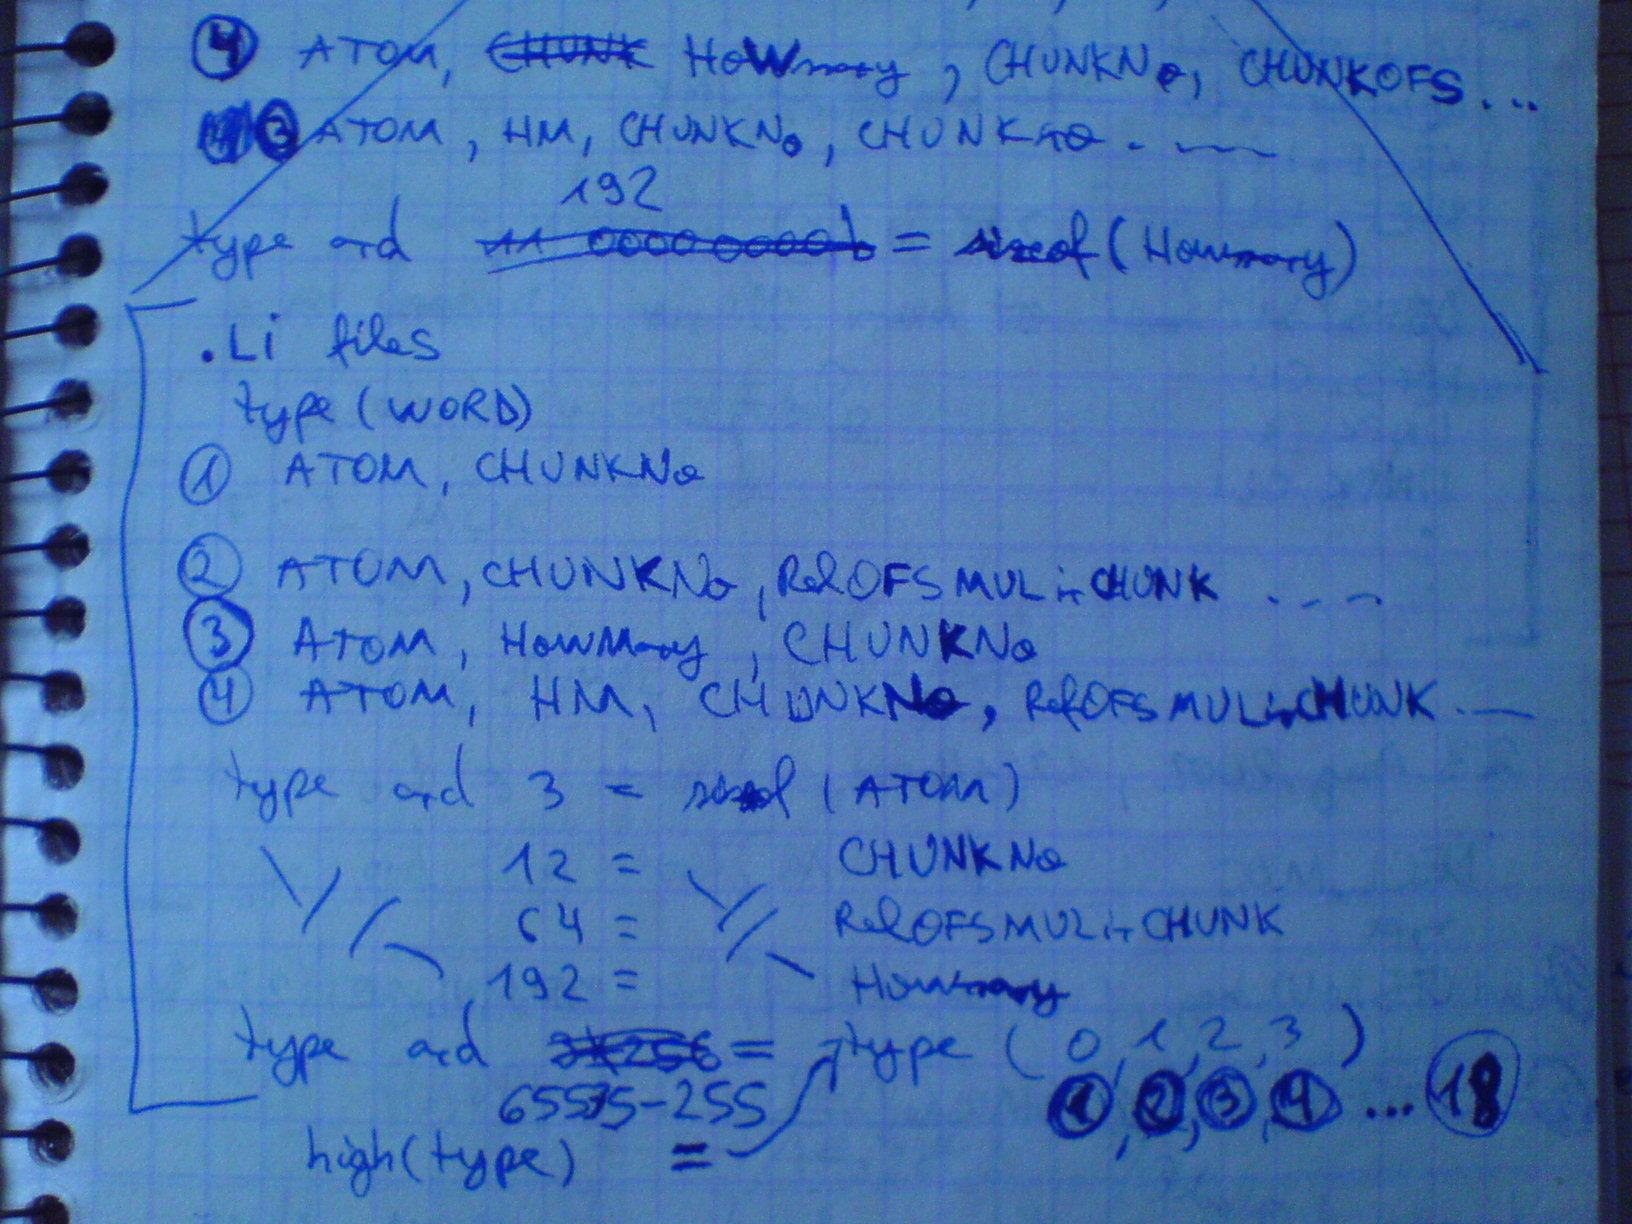 ④ ATOM, CHUNK HoWmany, CHUNKNo, CHUNKOFS...
③ ATOM, HM, CHUNKNo, CHUNK
192
type and 11 0000 0000b = sizeof (Howmany)
.Li files
type (WORD)
① ATOM, CHUNKNo
② ATOM, CHUNKNo, RelOFSMULinCHUNK ...
③ ATOM, HowMany, CHUNKNo
④ ATOM, HM, CHUNKNo, RelOFSMULinCHUNK ...
type and 3 = sizeof (ATOM)
12 = CHUNKNo
64 = RelOFSMULinCHUNK
192 = Howmany
type and = type (0,1,2,3)
65535-255 ①,②,③,④ ... ⑱
high(type) =